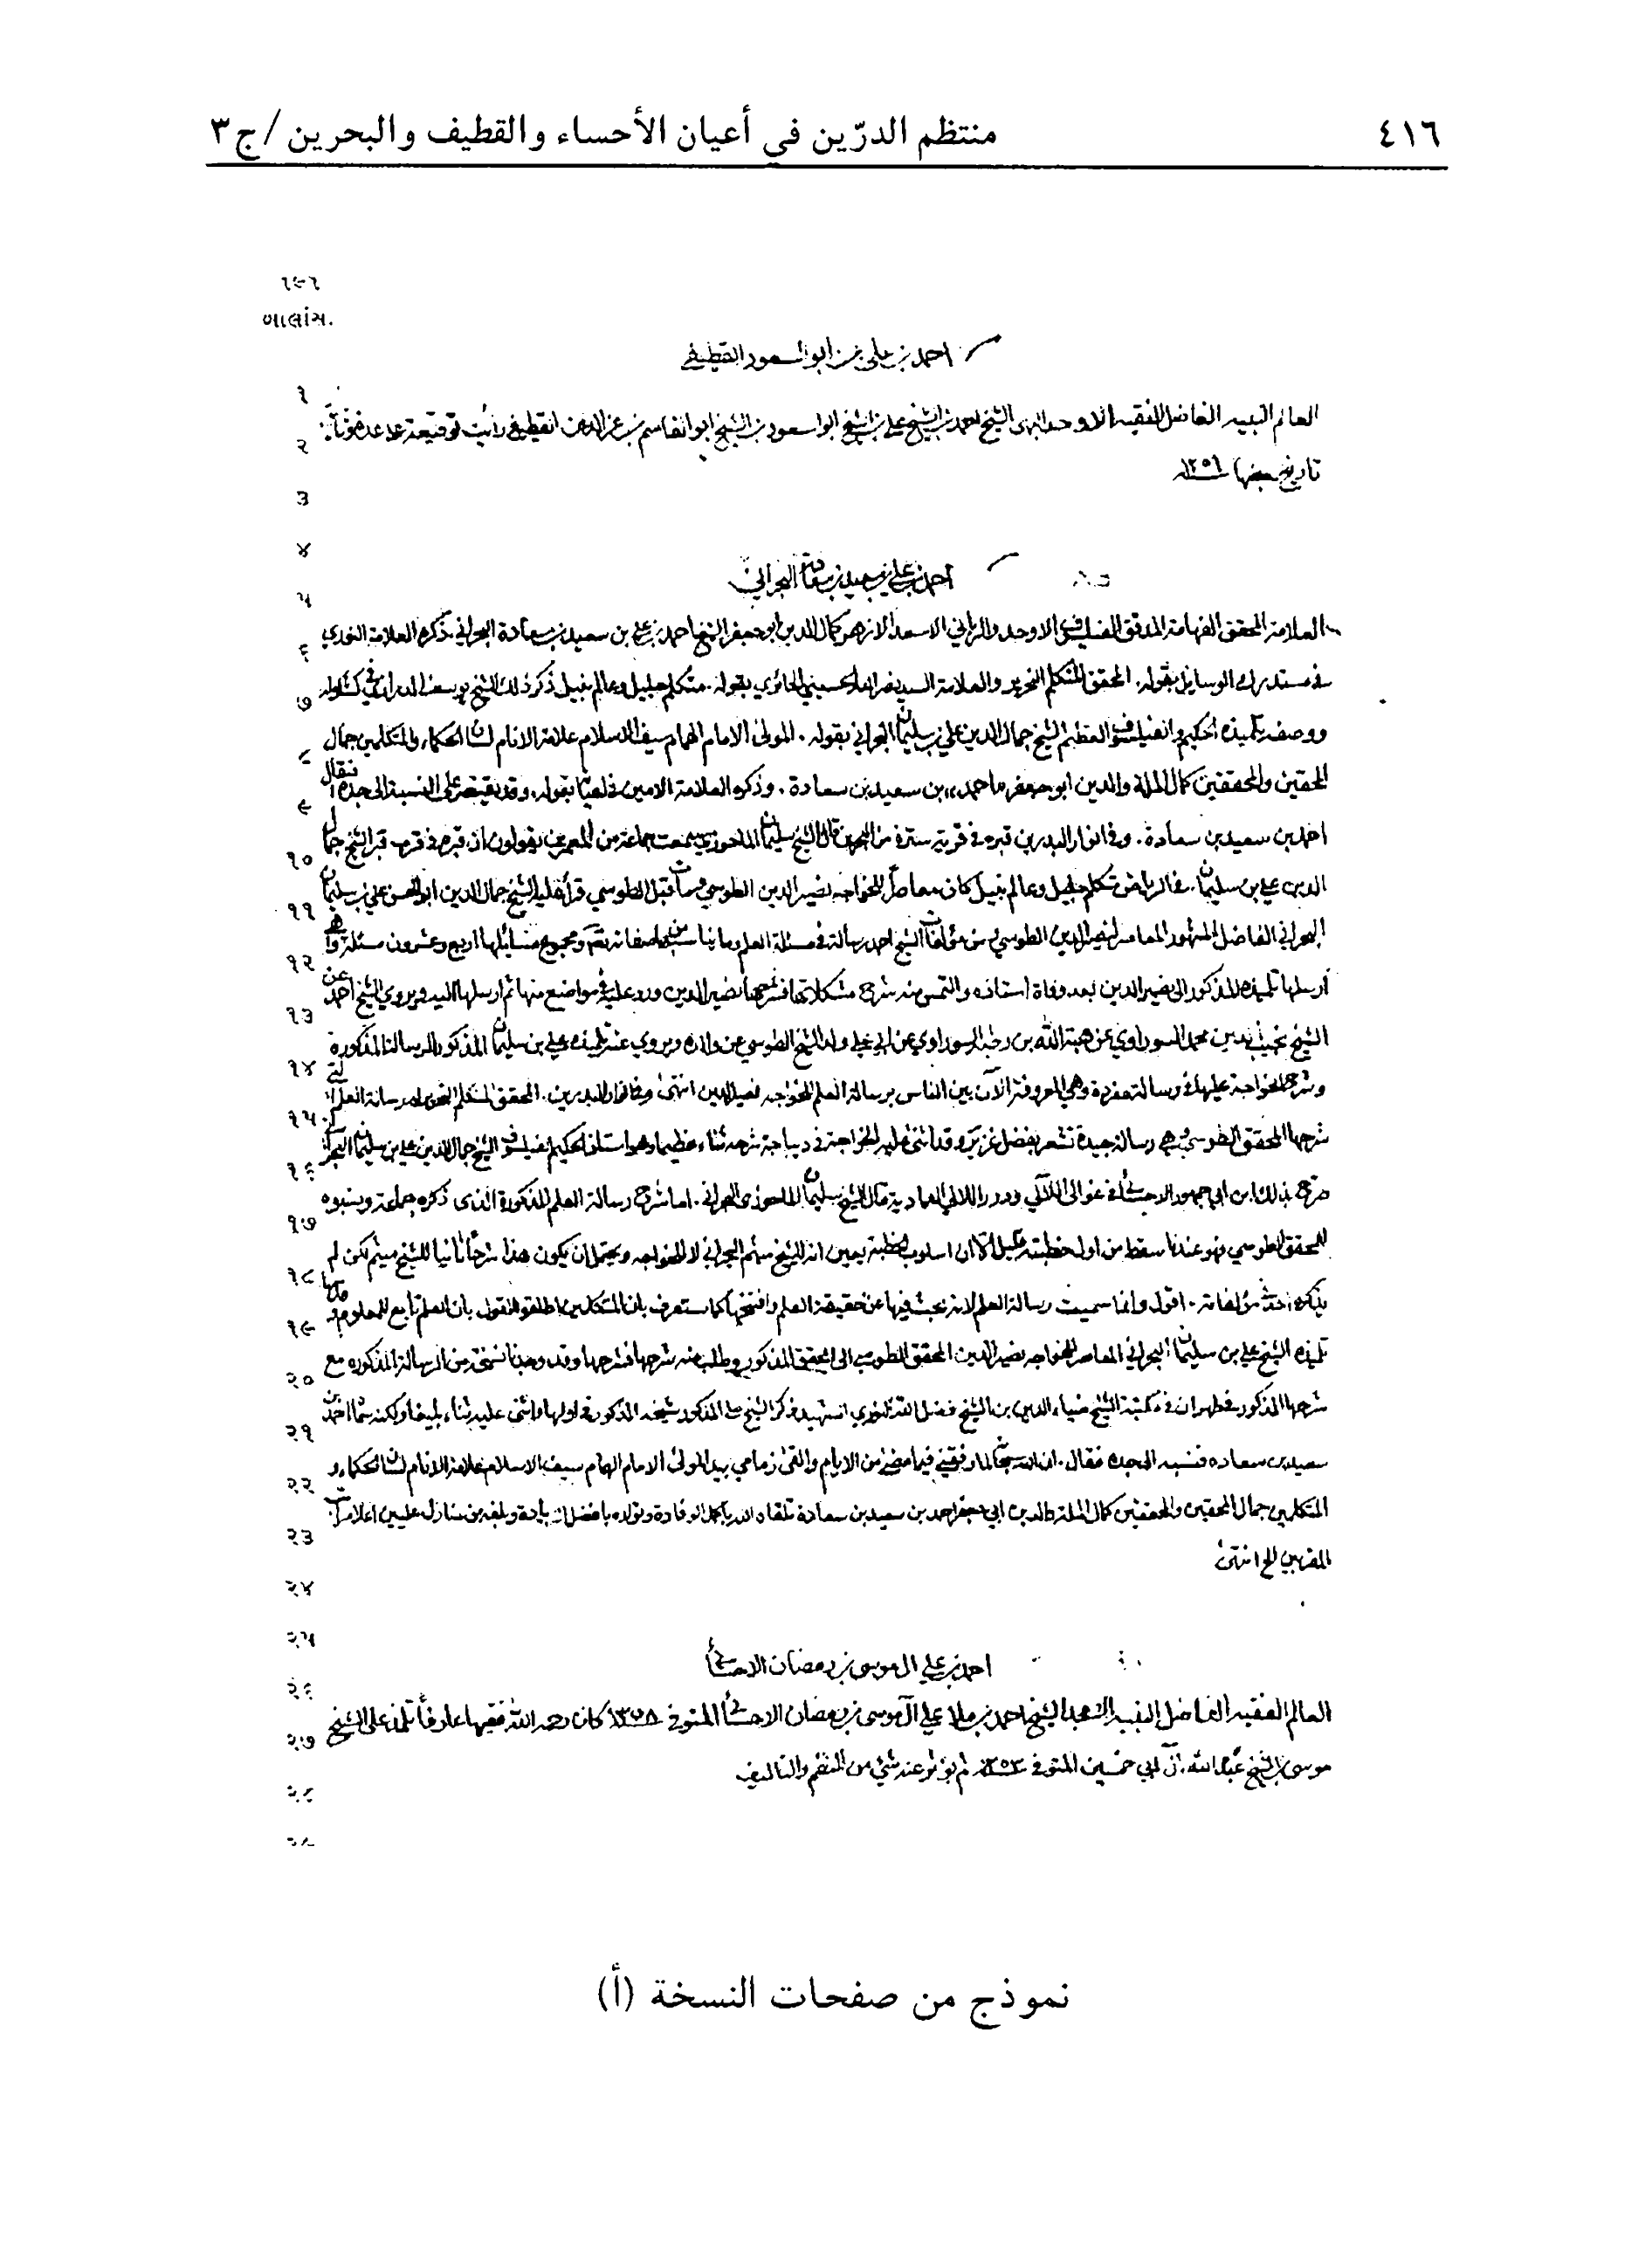 ٤١٦
منتظم الدرّين في أعيان الأحساء والقطيف والبحرين / ج٣
બાલાંસ.
احمد بن علي بن ابو السعود القطيفي
العالم النبيه الفاضل الفقيه الاوحد الشيخ احمد بن الشيخ علي بن الشيخ ابو السعود بن الشيخ ابو القاسم بن عز الدين القطيفي رأيت توقيعه على عدة
تاريخ بعضها ١٢٥٦
احمد بن علي بن سعيد بن سعادة البحراني
العلامة المحقق الفهامة المدقق الفيلسوف الاوحد والرباني الاسعد الازهر كمال الدين ابو جعفر الشيخ احمد بن علي بن سعيد بن سعادة البحراني ذكره العلامة النوري
في مستدرك الوسايل بقوله. المحقق المتكلم النحرير والعلامة السيد نصر الله الحسيني الحائري بقوله. متكلم جليل وعالم نبيل ذكر ذلك الشيخ يوسف الدرازي في كشكوله
ووصفه تلميذه الحكيم والفيلسوف العظيم الشيخ جمال الدين علي بن سليمان البحراني بقوله. المولى الامام الهمام سيف الاسلام علامة الانام لسان الحكماء والمتكلمين جمال
المحقين والمحققين كمال الملة والدين ابو جعفر احمد بن سعيد بن سعادة. وذكره العلامة الامين في بقوله. وقد يقتصر على النسبة الى جده فقال
احمد بن سعيد بن سعادة. وفي انوار البدرين قبره في قرية سترة من البحرين قال الشيخ سليمان الماحوزي سمعت جماعة من المعمرين يقولون ان قبره في قرب قبر الشيخ جمال
الدين علي بن سليمان. متكلم جليل وعالم نبيل كان معاصرا للخواجه نصير الدين الطوسي ومات قبل الطوسي قرأ عليه الشيخ جمال الدين ابو الحسن علي بن سليمان
البحراني الفاضل المشهور المعاصر لنصير الدين الطوسي ومن مؤلفات الشيخ احمد رسالة في مسئلة العلم وما يناسبها من صفاته تعالى ومجموع مسائلها اربع وعشرون مسئلة وقد
ارسلها تلميذه المذكور الى نصير الدين بعد وفاة استاذه والتمس منه شرح مشكلاتها فشرحها نصير الدين ورد عليه في مواضع منها ثم ارسلها اليه ويروي الشيخ احمد عن
الشيخ نجيب الدين محمد السوراوي عن هبة الله بن رطبه السوراوي عن ابي علي ولد الشيخ الطوسي عن والده ويروي عنه تلميذه علي بن سليمان المذكور الرسالة المذكورة
وشرح الخواجة عليها في رسالة مفردة وهي المعروفة الآن بين الناس برسالة العلم للخواجه نصير الدين انتهى وفي انوار البدرين. المحقق المتكلم النحرير له رسالة العلم التي
شرحها المحقق الطوسي وهي رسالة جيدة تشعر بفضل غزير وقد اثنى عليه الخواجة في ديباجة شرحه ثناء عظيما وهو استاذ الحكيم الفيلسوف الشيخ جمال الدين علي بن سليمان البحراني
صرح بذلك ابن ابي جمهور الاحسائي في غوالي اللآلي ودرر اللآلي العمادية قال الشيخ سليمان الماحوزي البحراني. اما شرح رسالة العلم المذكورة الذي ذكره جماعة ونسبوه
للمحقق الطوسي فهو عندنا سقط من اول خطبته قليل الا ان اسلوب الخطبة يعين انه للشيخ ميثم البحراني لا للخواجه ويحتمل ان يكون هذا شرحا ثانيا للشيخ ميثم لكن لم
يذكره احد في مؤلفاته. اقول وانما سميت رسالة العلم لانه بحث فيها عن حقيقة العلم وافتتحها كما ستعرف بان المتكلمين اطلقوا القول بان العلم تابع للمعلوم
تلميذه الشيخ علي بن سليمان البحراني المعاصر للخواجه نصير الدين المحقق الطوسي الى المحقق المذكور وطلب منه شرحها فشرحها وقد وجدنا نسخة من الرسالة المذكورة مع
شرحها المذكور في طهران في مكتبة الشيخ ضياء الدين بن الشيخ فضل الله النوري الشهيد ذكر الشيخ علي المذكور شيخه المذكور في اولها واثنى عليه ثناء بليغا ولكنه سماه احمد بن
سعيد بن سعاده فنسبه الى جده فقال. ان الله سبحانه لما وفقني فيما مضى من الايام والقى زمامي بيد المولى الامام الهمام سيف الاسلام علامة الانام لسان الحكماء و
المتكلمين جمال المحقين والمحققين كمال الملة والدين ابي جعفر احمد بن سعيد بن سعادة تلقاه الله باكمل الوفادة بافضل وبلغه من منازل عليين اعلا مراتب
المقربين الخ انتهى
احمد بن علي ال موسى بن رمضان الاحسائي
العالم الفقيه الفاضل النبيه الشيخ احمد بن ملا علي آل موسى بن رمضان الاحسائي المتوفى كان رحمه الله فقيها عارفا تلمذ على الشيخ
موسى بن الشيخ عبد الله آل ابي خمسين المتوفى ١٣٥٣ لم يؤثر عنه شئ من النظم والتاليف
نموذج من صفحات النسخة (أ)